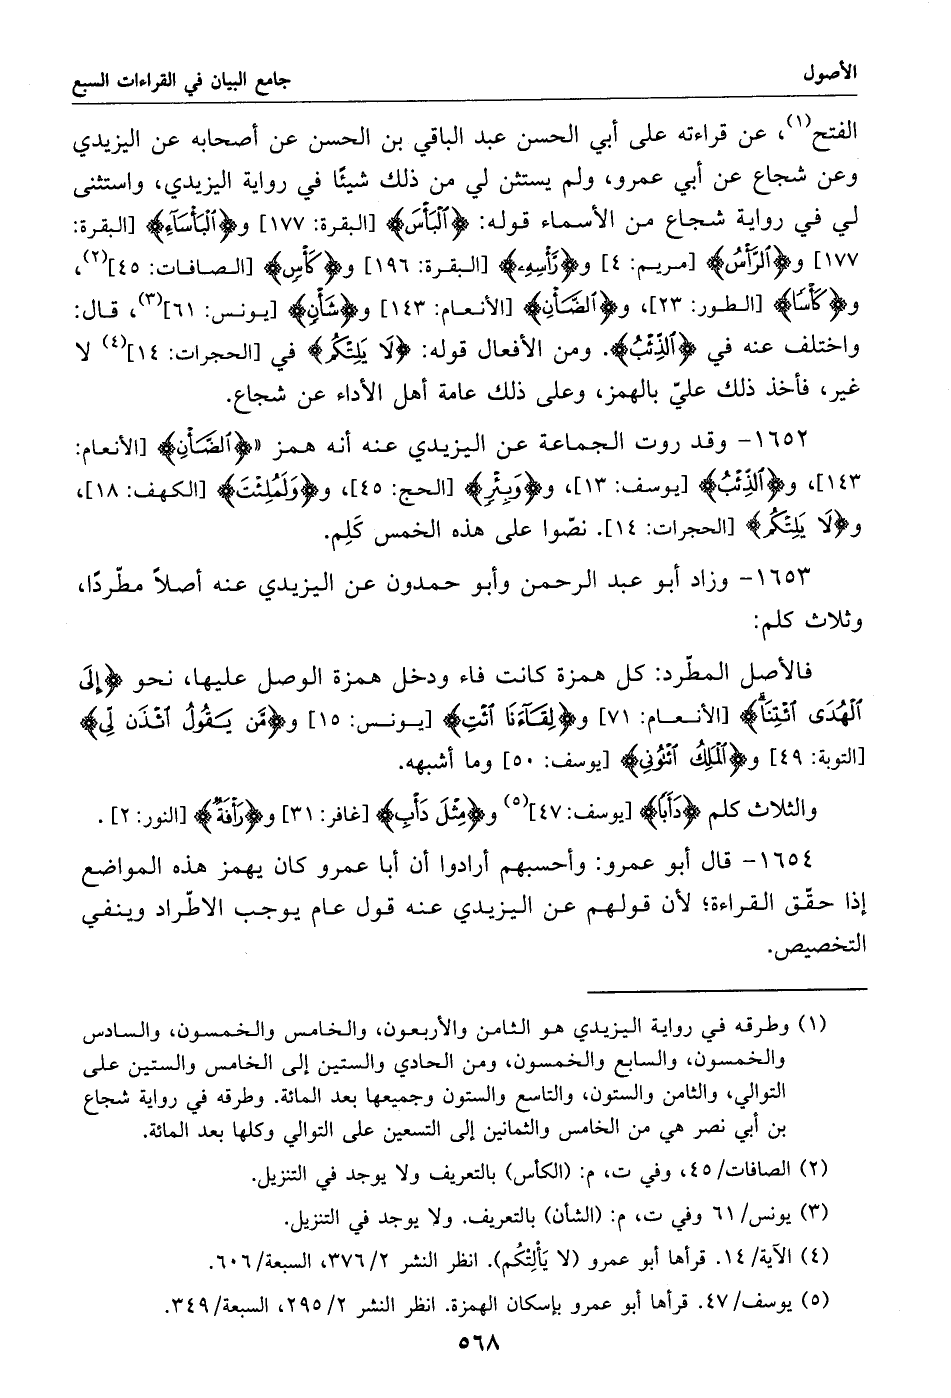 الأصول
جامع البيان في القراءات السبع
الفتح(١)، عن قراءته على أبي الحسن عبد الباقي بن الحسن عن أصحابه عن اليزيدي
وعن شجاع عن أبي عمرو، ولم يستثن لي من ذلك شيئًا في رواية اليزيدي، واستثنى
لي في رواية شجاع من الأسماء قوله: ﴿ٱلْبَأْسَ﴾ [البقرة: ١٧٧] و﴿ٱلْبَأْسَآءِ﴾ [البقرة:
١٧٧] و﴿ٱلرَّأْسُ﴾ [مريم: ٤] و﴿رَّأْسِهِۦ﴾ [البقرة: ١٩٦] و﴿كَأْسٍ﴾ [الصافات: ٤٥](٢)،
و﴿كَأْسًا﴾ [الطور: ٢٣]، و﴿ٱلضَّأْنِ﴾ [الأنعام: ١٤٣] و﴿شَأْنٍ﴾ [يونس: ٦١](٣)، قال:
واختلف عنه في ﴿ٱلذِّئْبُ﴾. ومن الأفعال قوله: ﴿لَا يَلِتْكُم﴾ في [الحجرات: ١٤](٤) لا
غير، فأخذ ذلك عليّ بالهمز، وعلى ذلك عامة أهل الأداء عن شجاع.
١٦٥٢- وقد روت الجماعة عن اليزيدي عنه أنه همز «﴿ٱلضَّأْنِ﴾ [الأنعام:
١٤٣]، و﴿ٱلذِّئْبُ﴾ [يوسف: ١٣]، و﴿وَبِئْرٍ﴾ [الحج: ٤٥]، و﴿وَلَمُلِئْتَ﴾ [الكهف: ١٨]،
و﴿لَا يَلِتْكُم﴾ [الحجرات: ١٤]. نصّوا على هذه الخمس كَلِم.
١٦٥٣- وزاد أبو عبد الرحمن وأبو حمدون عن اليزيدي عنه أصلاً مطّردًا،
وثلاث كلم:
فالأصل المطّرد: كل همزة كانت فاء ودخل همزة الوصل عليها، نحو ﴿إِلَى
ٱلْهُدَى ٱئْتِنَا﴾ [الأنعام: ٧١] و﴿لِقَآءَنَا ٱئْتِ﴾ [يونس: ١٥] و﴿مَّن يَقُولُ ٱئْذَن لِّي﴾
[التوبة: ٤٩] و﴿ٱلْمَلِكُ ٱئْتُونِي﴾ [يوسف: ٥٠] وما أشبهه.
والثلاث كلم ﴿دَأَبًا﴾ [يوسف: ٤٧](٥) و﴿مِثْلَ دَأْبِ﴾ [غافر: ٣١] و﴿رَأْفَةٌ﴾ [النور: ٢].
١٦٥٤- قال أبو عمرو: وأحسبهم أرادوا أن أبا عمرو كان يهمز هذه المواضع
إذا حقّق القراءة؛ لأن قولهم عن اليزيدي عنه قول عام يوجب الاطّراد وينفي
التخصيص.
(١) وطرقه في رواية اليزيدي هو الثامن والأربعون، والخامس والخمسون، والسادس
والخمسون، والسابع والخمسون، ومن الحادي والستين إلى الخامس والستين على
التوالي، والثامن والستون، والتاسع والستون وجميعها بعد المائة. وطرقه في رواية شجاع
بن أبي نصر هي من الخامس والثمانين إلى التسعين على التوالي وكلها بعد المائة.
(٢) الصافات/ ٤٥، وفي ت، م: (الكأس) بالتعريف ولا يوجد في التنزيل.
(٣) يونس/ ٦١ وفي ت، م: (الشأن) بالتعريف. ولا يوجد في التنزيل.
(٤) الآية/ ١٤. قرأها أبو عمرو (لا يَأْلِتْكُم). انظر النشر ٢/ ٣٧٦، السبعة/ ٦٠٦.
(٥) يوسف/ ٤٧. قرأها أبو عمرو بإسكان الهمزة. انظر النشر ٢/ ٢٩٥، السبعة/ ٣٤٩.
٥٦٨